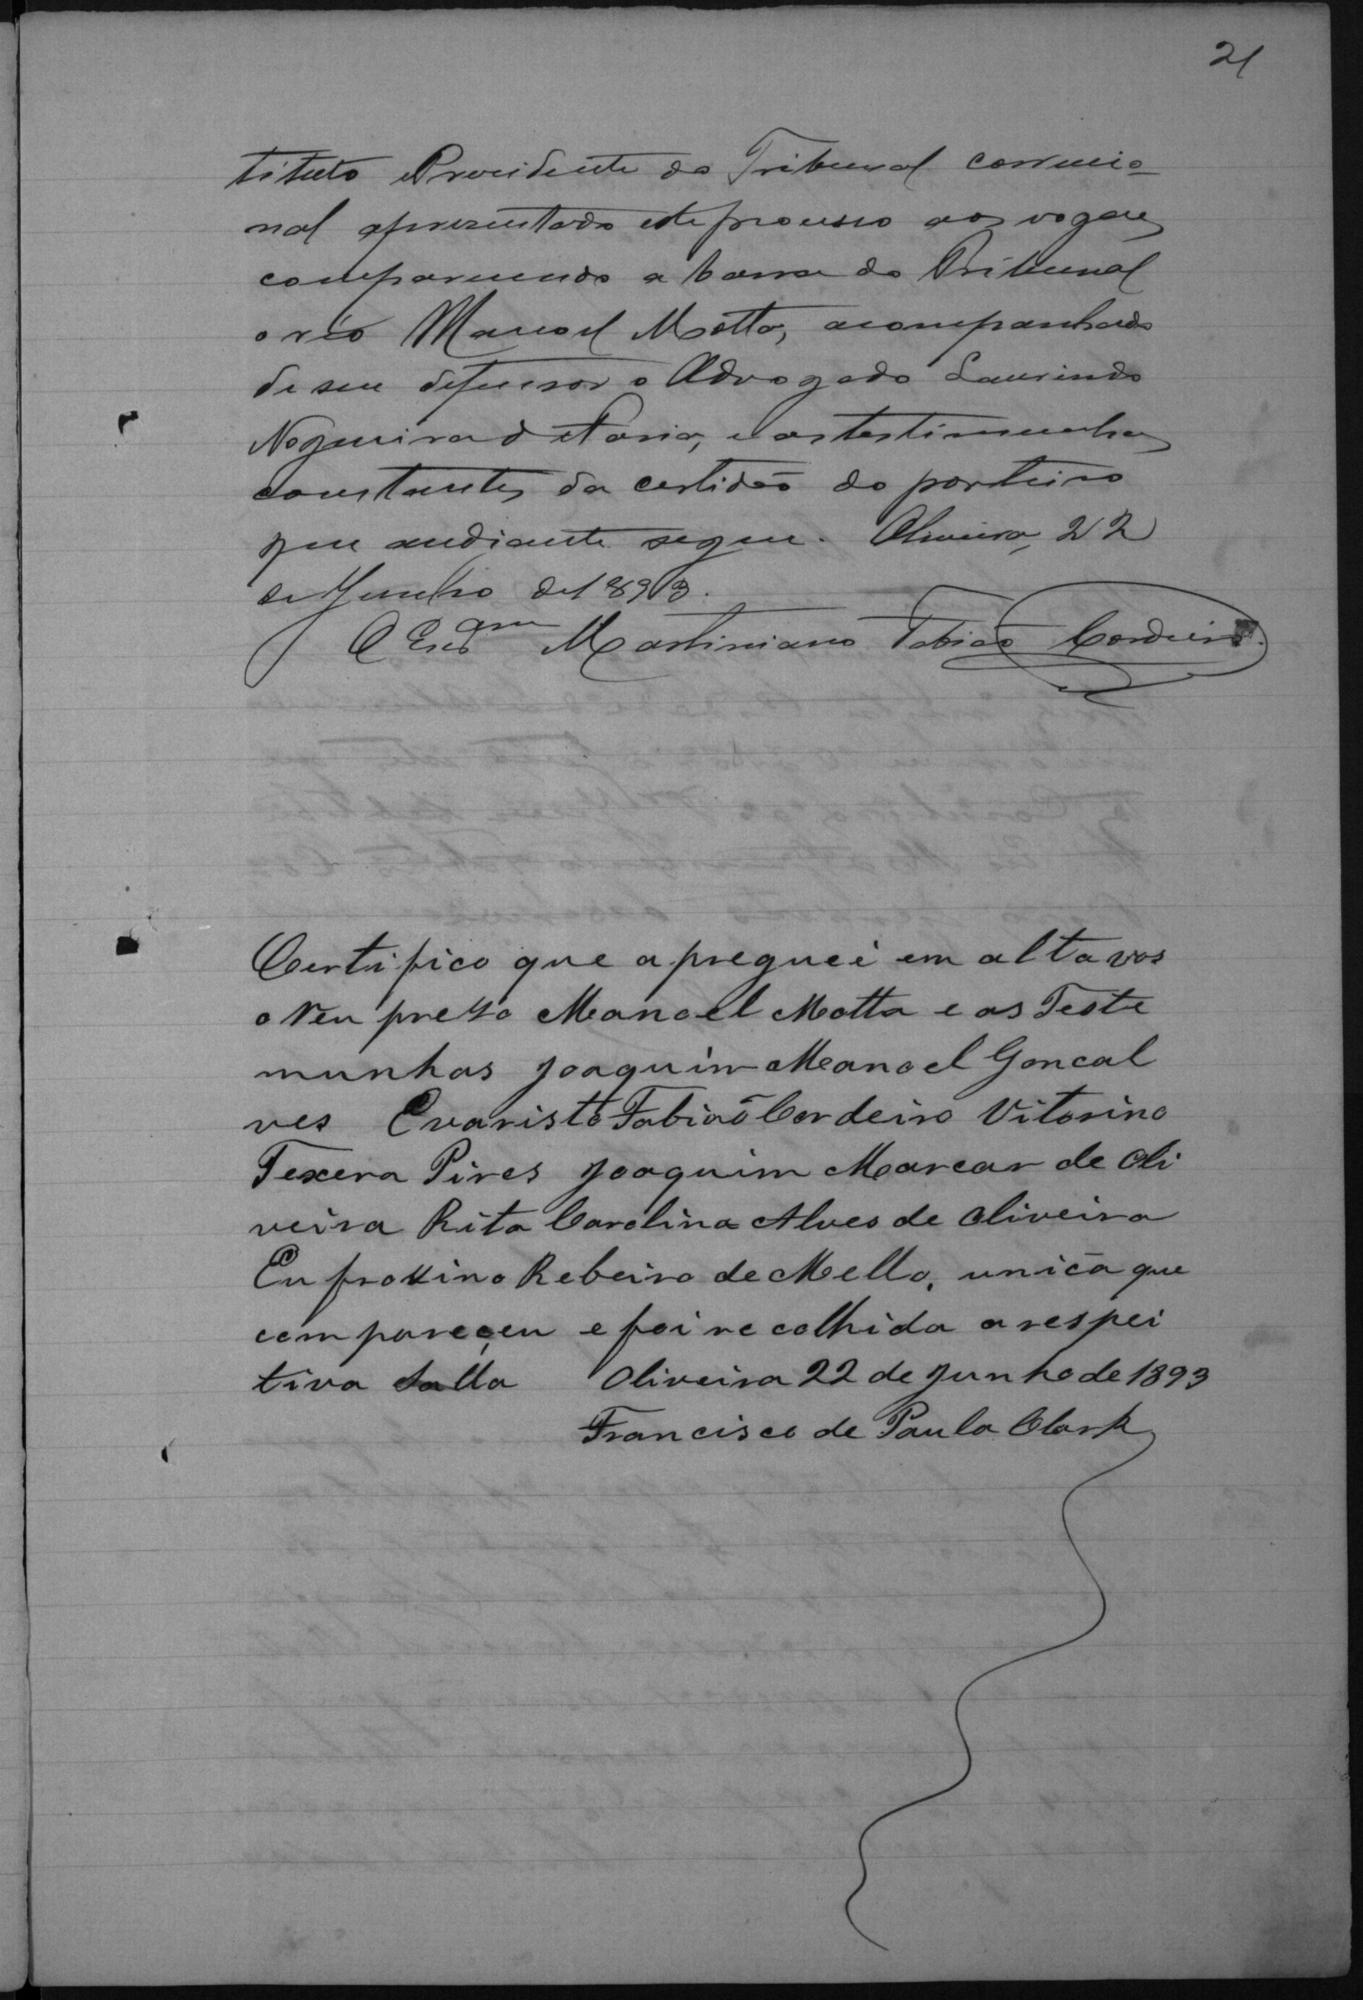 21
tituto Presidente do Tribunal correcio-
nal apresentado este processo aos vogaes
comparecendo a barra do Tribunal
o réo Manoel Motta, acompanhado
de seu defensor o Advogado Laurindo
Nogueira de Faria, e as testimunhas
constantes da certidão do porteiro
que audiante segue. Oliveira, 22
de Junho de 1893.
O Escram Martiniano Fabião Cordeiro.
Certifico que apreguei em alta vos
o Reu prezo Manoel Motta e as Teste
munhas Joaquim Manoel Goncal
ves Evaristo Fabião Cordeiro Vitorino
Texera Pires Joaquim Marcar de Oli
veira Rita Carolina Alves de Oliveira
Eufrozino Rebeiro de Mello, unica que
compareçeu e foi recolhida a respei
tiva salla Oliveira 22 de Junho de 1893
Francisco de Paula Clark